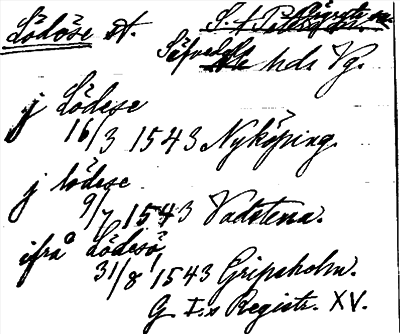 Lödöse st.
Säfvedals hd. Vg.
j Lödese
16/3 1543 Nyköping.
j lödese
9/7 1543 Vadstena.
ifrå Lödesö
31/8 1543 Gripsholm.
G. I:s Registr. XV.